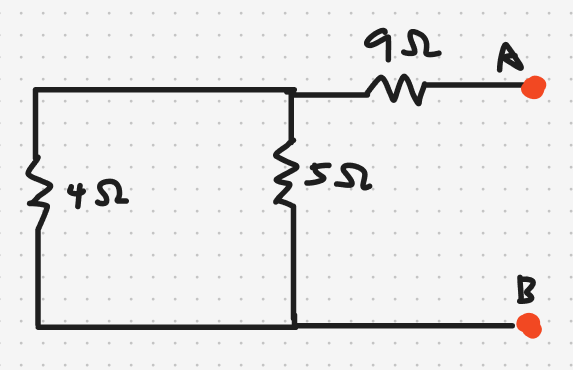 9 Ω
A
4 Ω
5 Ω
B